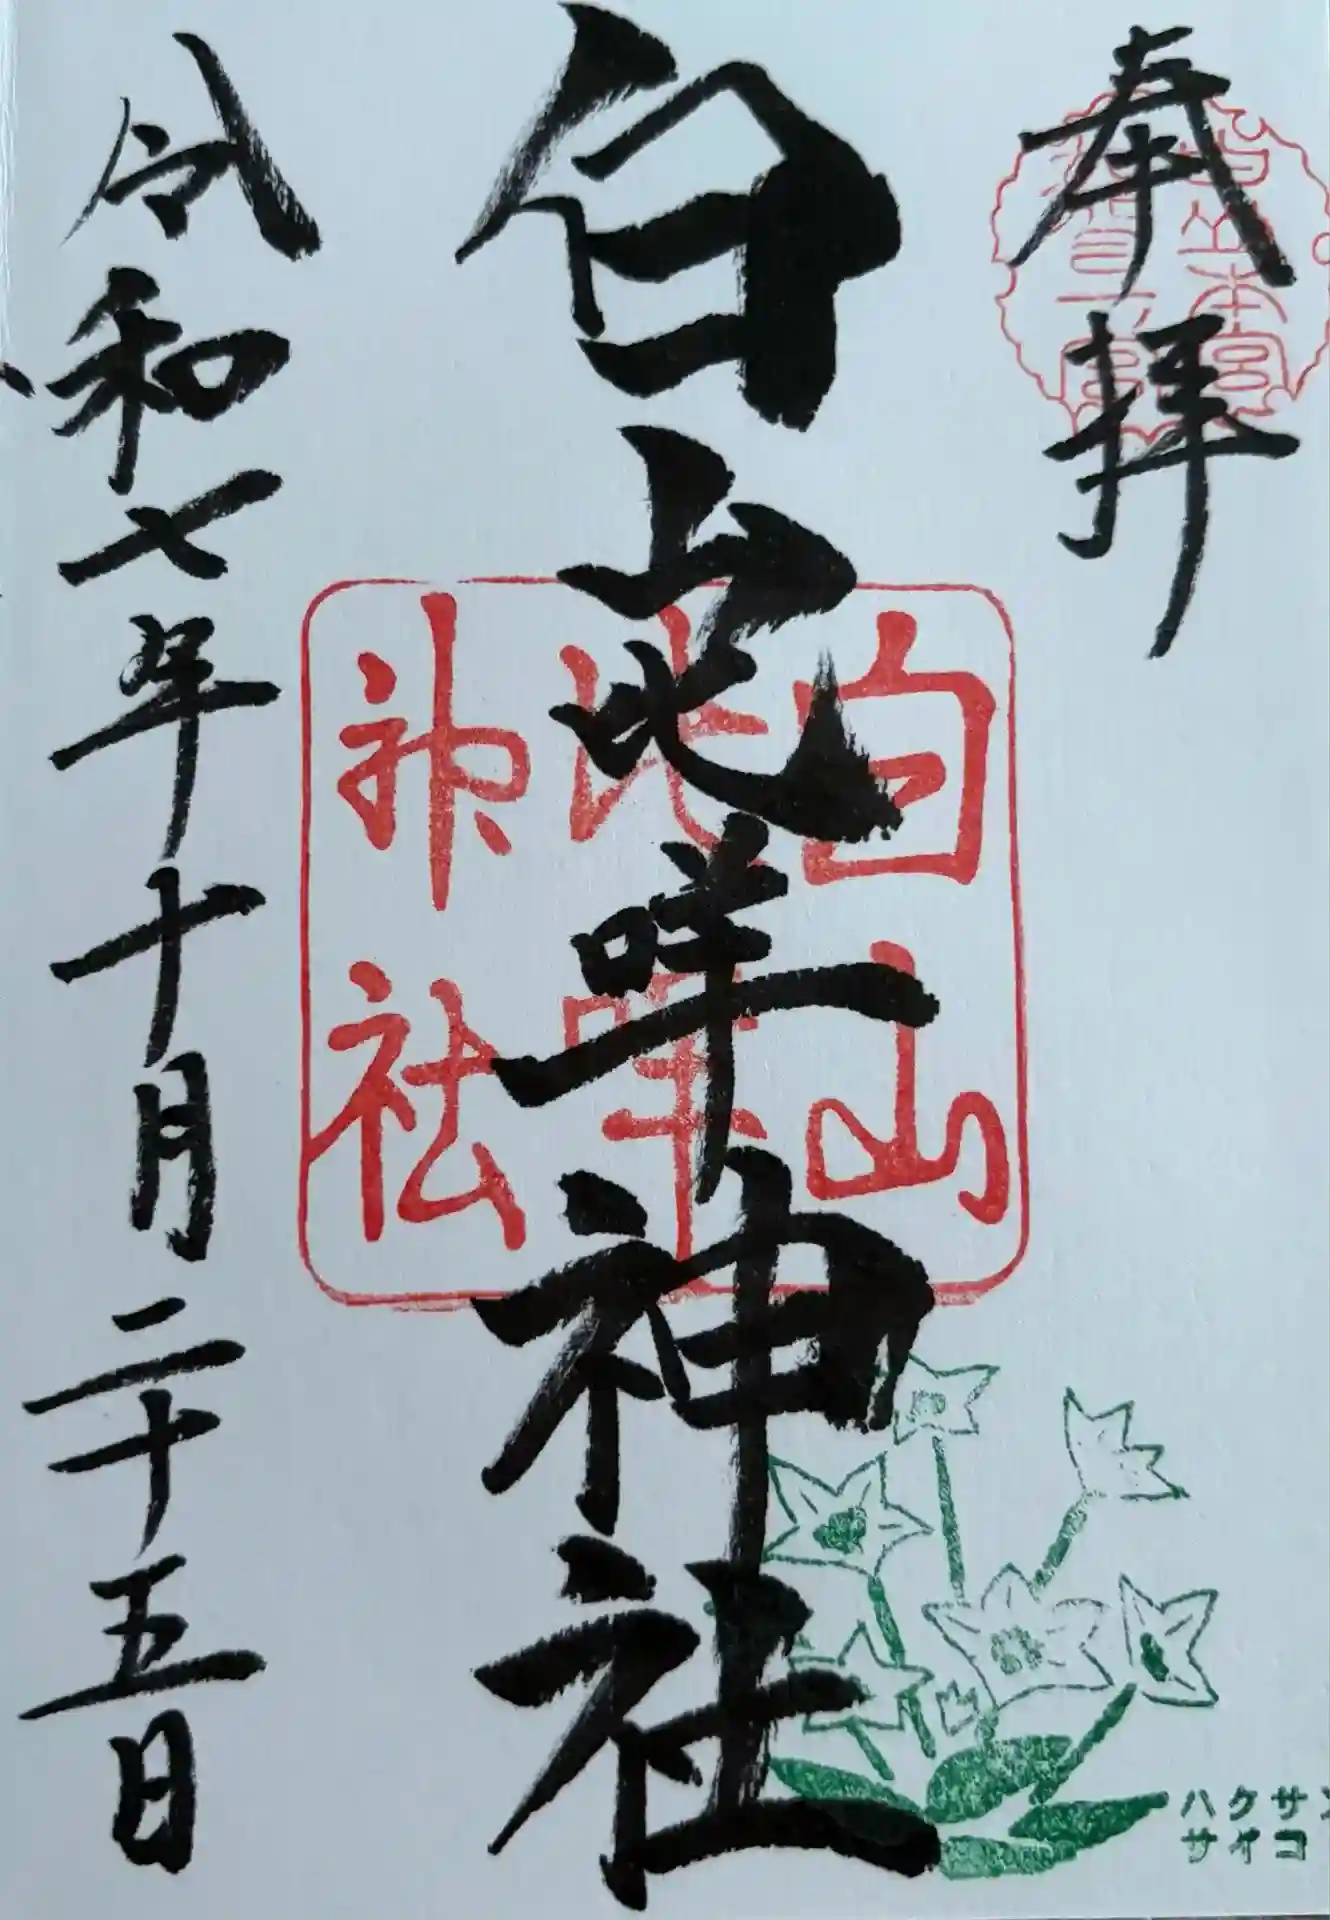 奉拝
白山本宮
加賀一宮
白山比咩神社
白山
比咩
神社
令和七年十月二十五日
ハクサン
サイコ